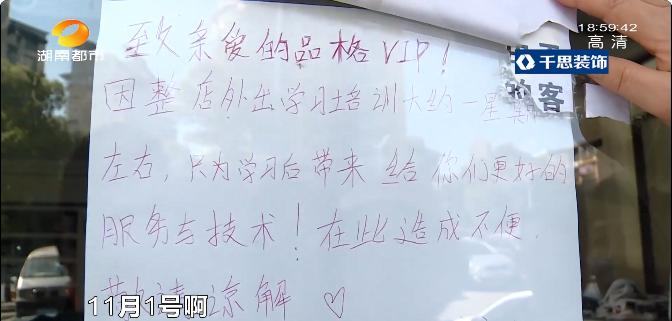 18:59:42
湖南都市
高清
千思装饰
的客
致亲爱的品格VIP!
因整店外出学习培训大约一星期
左右,只为学习后带来给你们更好的
服务与技术!在此造成不便,
敬请谅解♡
11月1号啊